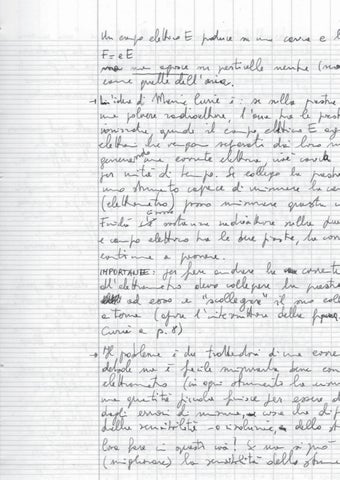 Un campo elettrico E produce su una carica e l
F = eE
ma non agisce su particelle neutre (
come quelle dell'aria.
→ L'idea di Marie Curie è: se sulla piastra
una polvere radioattiva, l'aria tra le pias
ionizzata, quindi il campo elettrico E ag
elettroni che vengono separati dai loro
generando una corrente elettrica, cioè carica
per unità di tempo. Se collego la piastra
uno strumento capace di misurare la ca
(elettrometro) posso misurare questa
Finché la sostanza radioattiva sulla
e campo elettrico tra le due piastre, la cor
continua a passare.
IMPORTANTE: per far andare la corrente
all'elettrometro devo collegare la piastra
ad esso e "scollegare" il suo coll
a terra (aprire l'interruttore della
Curie a p. 8)
→ Il problema è che trattandosi di una corre
debole non è facile misurarla bene con
elettrometro (in ogni strumento la
una quantità piccola finisce per essere
dagli errori di misura, cosa che dip
dalla sensibilità o risoluzione, dello s
Cosa fare in questi casi? Se non si può
(migliorare) la sensibilità dello strume